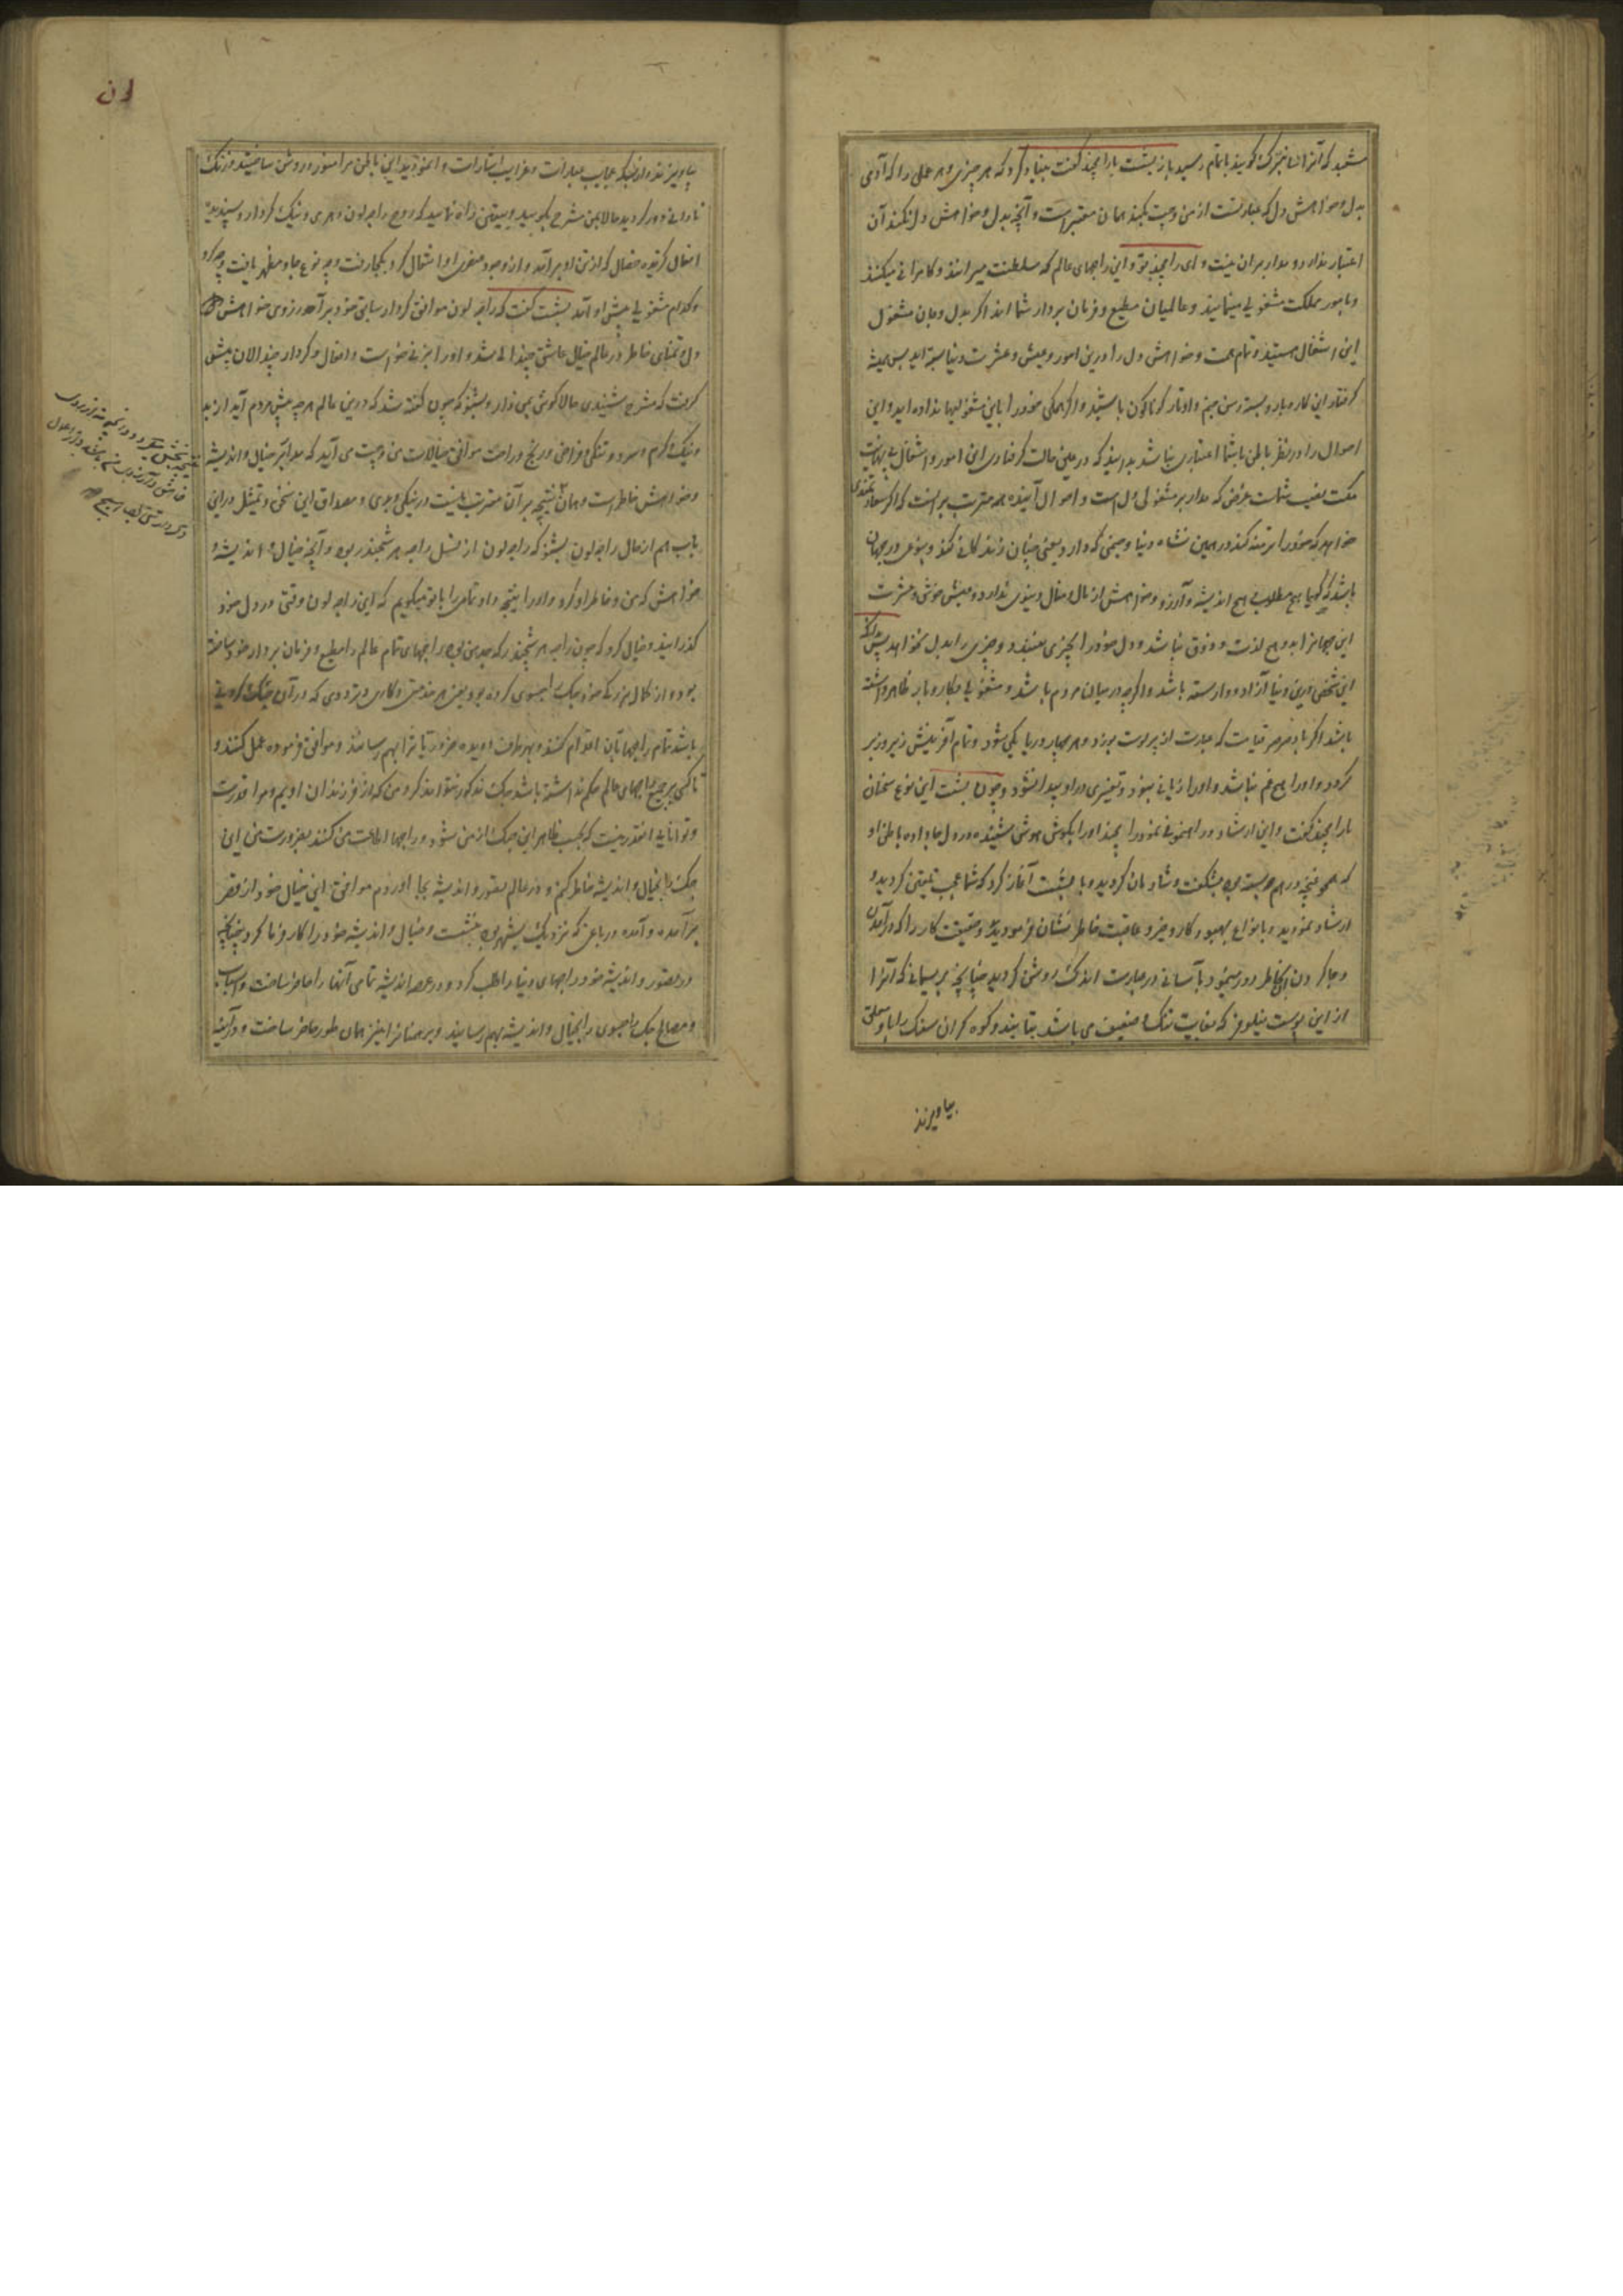 شنید که آنرا انانبرک گویند باتمام رسید باز بشست بارامچند گفت بنیاد کرد که هر چیزی و هر عملی را که آدمی
بدل و خواهش دل که عبارتست از من و چت بکند همان معتبر است و آنچه بدل و خواهش دل نکند آن
اعتبار ندارد و مدار بران نیست و ای رامچند تو و این راجهای عالم که سلطنت میرانند و کامرانی میکنند
و بامور مملکت مشغولی مینمایند و عالمیان مطیع و فرمان بردار شما اند اگر بدل و جان مشغول
این اشغال هستید و تمام همت و خواهش دل را درین امور و عیش و عشرت دنیا بسته اید پس همیشه
گرفتار این کار و بار و بسته رسن جسم و اوتار گوناگون باشید و اگر همگی خود را باین مشغولیها نداده اید و این
احوال را در نظر باطن باشما اعتباری نباشد بدانید که در عین حالت گرفتاری این امور و اشغال بی نهایت
مکت نصیب شماست غرض که مدار بر مشغولی دل است و احوال آینده همه مترتب بر انست که اگر سعادتمندی
خواهد که خود را برمنه کند در همین نشاه دنیا و جسمی که دارد یعنی چنان زندگانی کند و بنوعی در جهان
باشد که گویا هیچ مطلوب هیچ اندیشه و آرزو و خواهش از مال و منال دنیوی ندارد و عیش خوش و عشرت
این جهان نزد او هیچ لذت و ذوق نباشد و دل خود را بچیزی نبندد و چیزی را بدل نخواهد پس
این شخص درین دنیا آزاد و وارسته باشد و اگرچه در میان مردم باشد و مشغولی بکار و بار ظاهر داشته
باشد اگر باد صرصر قیامت که عبارت از پرلوت بوزد و هر چهار دریا یکی شود و تمام آفرینش زیر و زبر
گردد او را هیچ غم نباشد و او را زیانی نبود و تغییری در او پیدا نشود و چون بشست این نوع سخنان
بارامچند گفت و این ارشاد و راهنمونی نمود رامچند اورا بگوش هوش شنیده در دل جا داده باطن او
که همچو غنچه درهم پیوسته بود بشکفت و شادمان گردیده با بشست آغاز کرد که شما عجب تلقین کردید و
ارشاد نمودید و بانواع بهبود کار و خیر و عاقبت خاطر نشان فرمودید و حقیقت کار را که درآمدن
و جا کردن آن بخاطر دور مینمود بآسانی در عبارت اندک روشن کردید چنانچه بریسمانی که آنرا
از این پوست نیلوفر که بغایت نازک و ضعیف می باشد بتابند و کوه گران سنگ را با او معلق
بیاویزند
لون
بیاویزند و از بسکه عجایب عبارات و غرایب اشارات وانمودید این باطن مرا منور و روشن ساختید و زنگ
نادانی دور کردید حالا بمن شرح بگویید و بیقین راه نمایید که روح راجه لون و هری و نیک کردار و پسندیده
افعال گزیده خصال که از تن او برآمد و از وجود عنصری او انتقال کرد بکجا رفت و چه نوع جا و مظهر یافت و چه کرد
و کدام مشغولی پیش او آمد بشست گفت که راجه لون موافق کردار سابق خود برآمد و آرزوی خواهش
دل و تمنای خاطر در عالم خیال عاشق چندالی شد و اورا بزنی خواست و افعال و کردار چندالان پیش
گرفت که مشرح شنیدی حالا گوش بمن دار و بشنو که چون گفته شد که درین عالم هرچه پیش مردم آید از بد
و نیک و گرم و سرد و تنگی و فراخی و رنج و راحت موافق خیالات من و چت می آید که مدار بر خیال و اندیشه
و خواهش خاطر است و همان نتیجه بر آن مترتب بایست در نیکی و بدی و مصداق این سخن و تمثیل در این
باب هم از حال راجه لون بشنو که راجه لون از نسل راجه هرشچندر بود و آنچه خیال و اندیشه و
خواهش که من و خاطر او کرد و اورا نتیجه داد تمامی را باتو میگویم که این راجه لون وقتی در دل خود
گذرانید و خیال کرد که چون راجه هرشچندر که جد من بود راجهای تمام عالم را مطیع و فرمان بردار خود ساخته
بود و از کمال بزرگی خود جگ راجسوی کرده بود یعنی هر خدمتی و کاری و ترددی که در آن جگ کردنی
باشد تمام راجها بآن اقدام کنند و بهر طرف دویده ضروریات را بهم رسانند و موافق فرموده عمل کنند و
تا کسی بر جمیع راجهای عالم حکم نداشته باشد جگ مذکور نتواند کرد من که از فرزندان اویم و مرا قدرت
و توانایی انقدر نیست که بحسب ظاهر این جگ از من شود و راجها اطاعت من کنند بضرورت من این
جگ را بخیال و اندیشه خاطر کنم و در عالم تصور و اندیشه بجا آوردم موافق این خیال خود از قصر
برآمده و آمده در باغی که نزدیک شهر بود بنشست و خیال و اندیشه خود را کارفرما کرد چنانچه
در تصور و اندیشه خود راجهای دنیا را طلب کرد و در عرصه اندیشه تمامی آنها را حاضر ساخت و اسباب
و مصالح جگ راجسوی را بخیال و اندیشه بهم رسانید و برهمنان را نیز همان طور حاضر ساخت و در آیینه